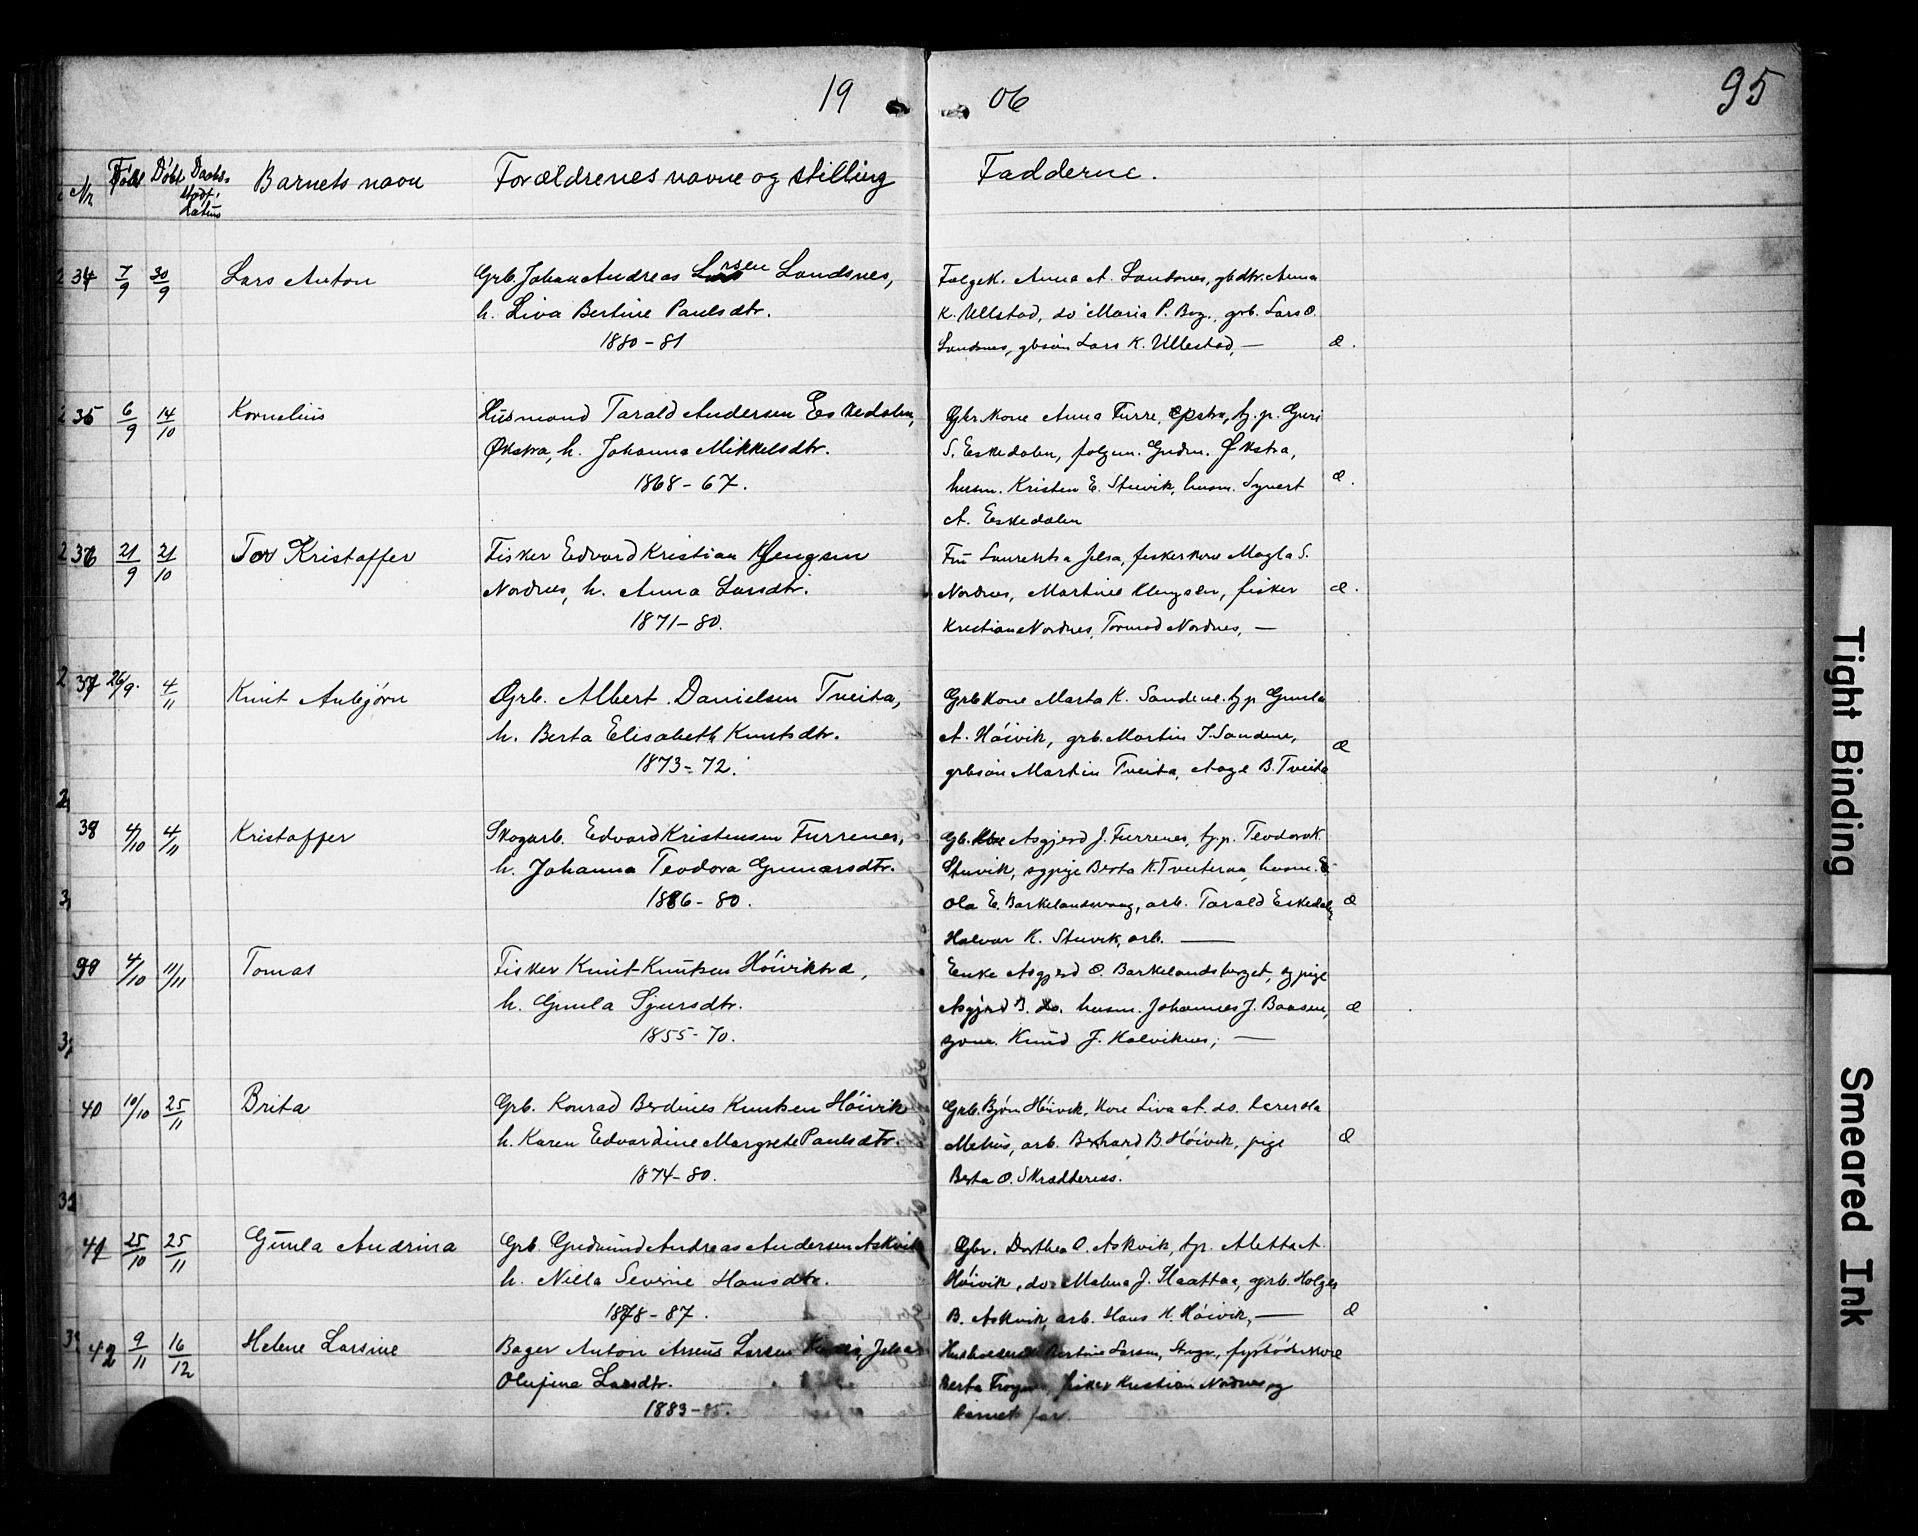 19 06 95
Nr. Født Døbt Daabs- Barnets navn Forældrenes navne og stilling Fadderne.
34 7/9 30/9 Lars Anton Grb. Johan Andreas Larsen Landsnes, Anna A. Landsnes, gbdtr. Anna
h. Liva Bertine Paulsdtr. K. Ullestad, do Maria P. Bog., grb. Lars O.
1880-81 Landsnes, gbsøn Lars K. Ullestad, — Æ.
35 6/9 14/10 Kornelius Husmand Tarald Andersen Eskedalen, Gbr.kone Anna Furre, tj. p. Guri
Økstra, h. Johanna Mikkelsdtr. S. Eskedalen, folgem. Gudm. Økstra,
1868-67. husm. Kristen E. Stuvik, husm. Syvert Æ.
A. Eskedalen
36 21/9 21/10 Tor Kristoffer Fisker Edvard Kristian Klengsen Fru Laurentsa Jelsa, fiskerkone Magla S.
Nordnes, h. Anna Larsdtr. Nordnes, Martines Klengsen, fisker Æ.
1871-80. Kristian Nordnes, Tormod Nordnes, —
37 26/9. 4/11 Knut Anbjørn Grb. Albert Danielsen Tveita, Grbkone Marta K. Sandene tj. p. Gunla
h. Berta Elisabeth Knutsdtr. A. Høivik, grb. Martin T. Sandene, Æ
1873-72. grbsøn Martin Tveita, Aage B. Tveita
38 4/10 4/11 Kristoffer Skogarb. Edvard Kristensen Furrenes, Gb. kone Asgjerd J. Furrenes, tj. p. Teodora K.
h. Johanna Teodora Gunnarsdtr. Stuvik, sypige Berta K. Tveiteraa, husm.
1886-80. Ola E. Barkelandsvaag, arb. Tarald Eskedalen Æ
Halvor K. Stuvik, arb. —
39 4/10 11/11 Tomas Fisker Knut Knutsen Høivikstø, Enke Asgjerd O. Barkelandsberget, sypige
h. Gunla Sjursdtr. Asgjerd B. do. husm. Johannes J. Baasen, Æ
1855-70. Knud J. Halviknes, —
40 10/10 25/11 Brita Grb. Konrad Berdines Knutsen Høivik Grb. Bjøn Høivik, kone Liva A. do. lærer Ola
h. Karen Edvardine Margrete Paulsdtr. Mehus, arb. Berhard B. Høivik, pige Æ
1874-80. Berta O. Skradternes.
41 25/10 25/11 Gunla Andrina Grb. Gudmund Andreas Andersen Askvik Gbr. Dorthea O. Askvik, tp. Aletta A.
h. Niella Severine Hansdtr. Høivik, do. Malena J. Haattaa, grb. Holger
1878-87. B. Askvik, arb. Hans H. Høivik, — Æ
42 9/11 16/12 Helene Larsine Bager Anton Asseus Larsen Jelsa Bertine Larsen, Stvgr., fyrbøderkone
Olufine Larsdtr. Berta fisker Kristian Nordnes og
1883-85. barnets far.
Tight Binding
Smeared Ink